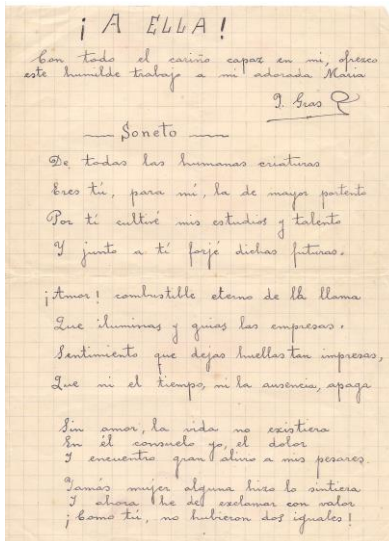 ¡A ELLA!
Con todo el cariño capaz en mi, ofrezco
este humilde trabajo a mi adorada Maria
J. Gras
Soneto
De todas las humanas criaturas
Eres tú, para mí, la de mayor portento
Por tí cultivé mis estudios y talento
Y junto a tí forjé dichas futuras.
¡Amor! combustible eterno de la llama
Que iluminas y guias las empresas.
Sentimiento que dejas huellas tan impresas,
Que ni el tiempo, ni la ausencia, apaga
Sin amor, la vida no existiera
En él consuelo yo, el dolor
Y encuentro gran alivio a mis pesares.
Jamás mujer alguna hizo lo sintiera
Y ahora he de exclamar con valor
¡Como tú, no hubieron dos iguales!